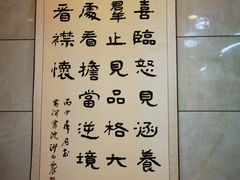 喜臨怒見涵養
羣止見品格大
處看擔當逆境
看襟懷